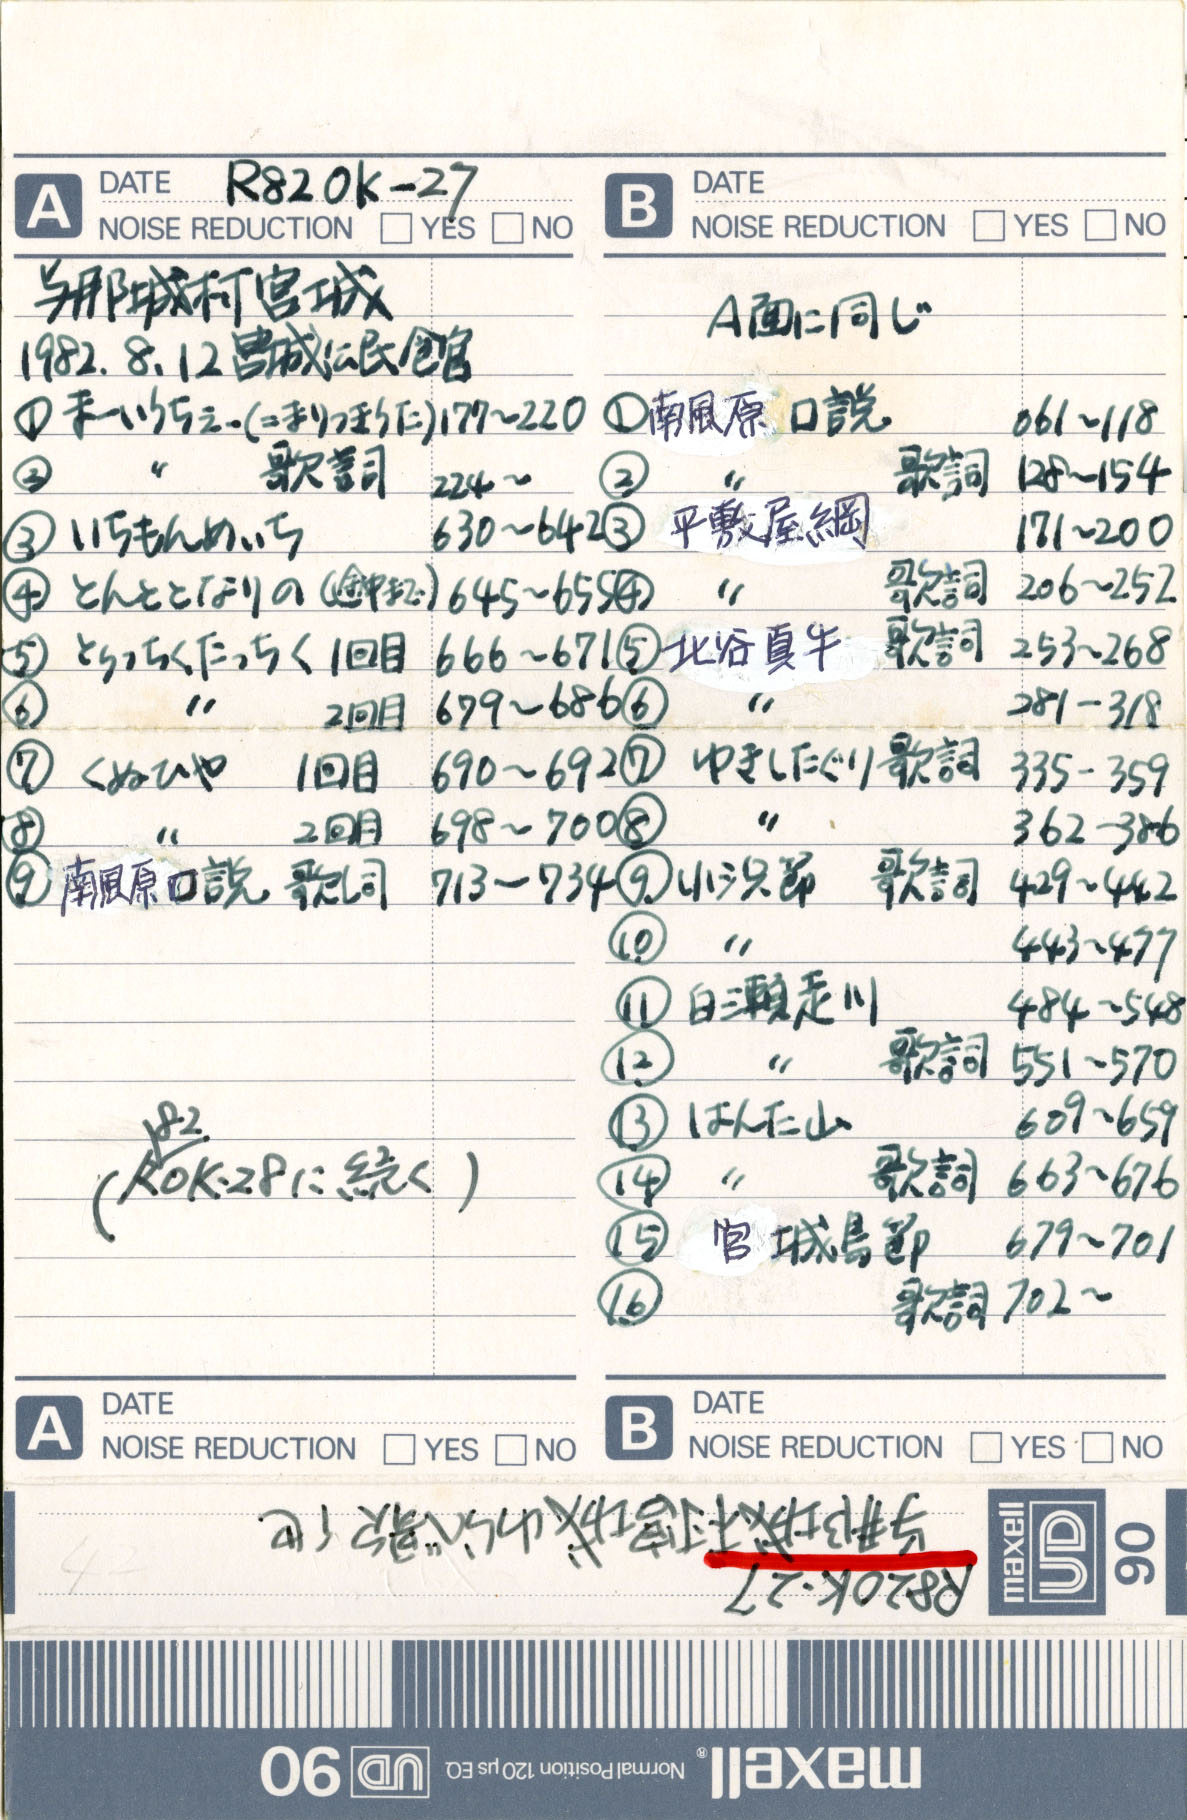 A DATE R82OK-27
NOISE REDUCTION YES NO
与那城村宮城
1982.8.12 宮城公民館
① まーいうちぇー(=まりつきうた) 177~220
② 〃 歌詞 224~
③ いちもんめいち 630~642
④ とんととなりの(途中まで) 645~655
⑤ とぅっちくたっちく 1回目 666~671
⑥ 〃 2回目 679~686
⑦ くぬひや 1回目 690~692
⑧ 〃 2回目 698~700
⑨ 南風原口説 歌詞 713~734
(R82OK-28に続く)
A DATE
NOISE REDUCTION YES NO
B DATE
NOISE REDUCTION YES NO
A面に同じ
① 南風原口説 061~118
② 〃 歌詞 128~154
③ 平敷屋綱 171~200
④ 〃 歌詞 206~252
⑤ 北谷真牛 歌詞 253~268
⑥ 〃 281-318
⑦ ゆきしたぐり 歌詞 335-359
⑧ 〃 362-386
⑨ 小浜節 歌詞 429~442
⑩ 〃 443~477
⑪ 白瀬走川 484~548
⑫ 〃 歌詞 551~570
⑬ はんた山 609~659
⑭ 〃 歌詞 663~676
⑮ 宮城島節 679~701
⑯ 歌詞 702~
B DATE
NOISE REDUCTION YES NO
R82OK-27
与那城村宮城わらべ歌 他
maxell UD 90
maxell® Normal Position 120 μs EQ UD 90